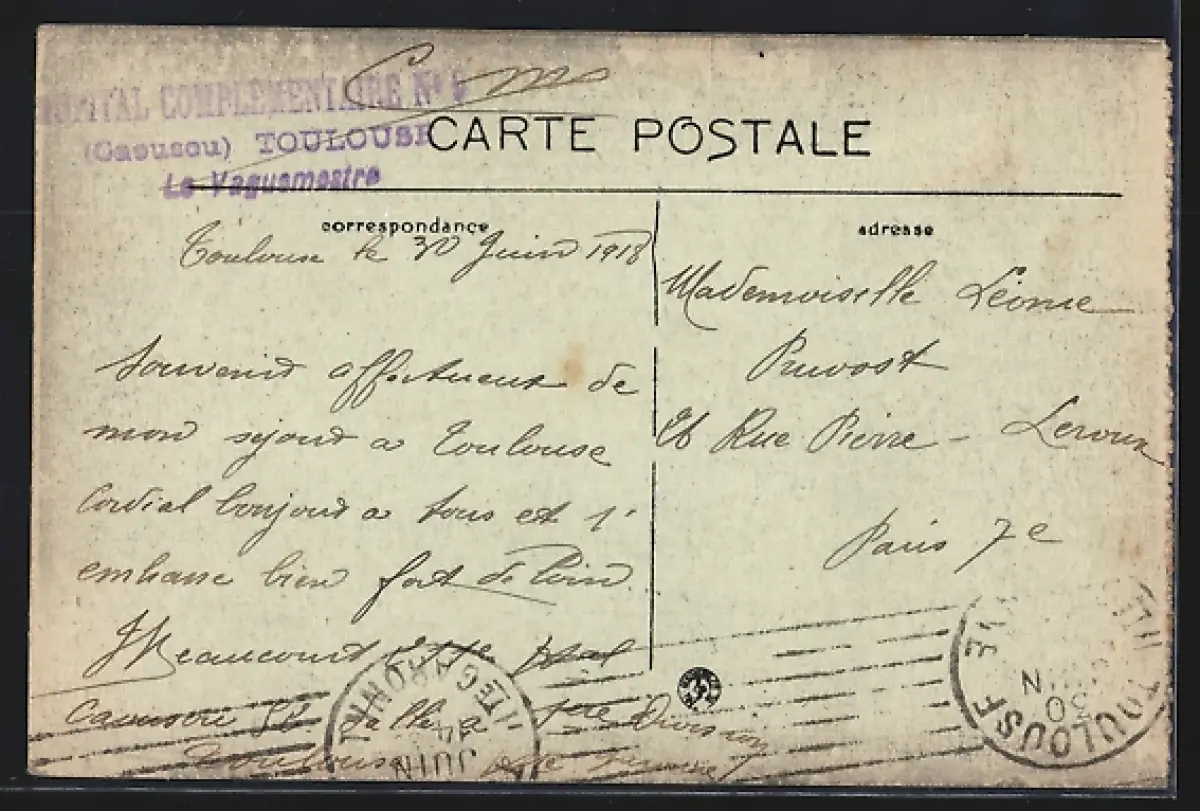 HOPITAL COMPLEMENTAIRE N°
(Caousou) TOULOUSE
Le Vaguemestre
CARTE POSTALE
correspondance
Toulouse le 30 Juin 1918
Souvenir affectueux de
mon séjour a Toulouse
Cordial bonjour a tous et t'
embrasse bien fort de loin
JBeaucourt
Caousou Division
Toulouse
adresse
Mademoiselle Léonie
Pruvost
26 Rue Pierre - Leroux
Paris 7e
TOULOUSE
30
JUIN
HTE GARONNE
JUIN